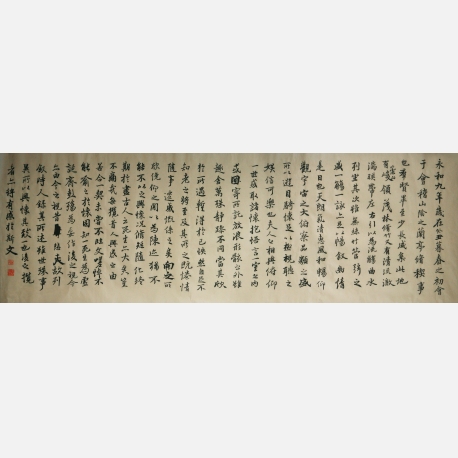 永和九年歲在癸丑暮春之初會
于會稽山陰之蘭亭脩稧事
也羣賢畢至少長咸集此地
有峻領茂林脩竹又有清流激
湍暎帶左右引以為流觴曲水
列坐其次雖無絲竹管弦之
盛一觴一詠亦足以暢敘幽情
是日也天朗氣清惠風和暢仰
觀宇宙之大俯察品類之盛
所以遊目騁懷足以極視聽之
娛信可樂也夫人之相與俯仰
一世或取諸懷抱悟言一室之內
或因寄所託放浪形骸之外雖
趣舍萬殊靜躁不同當其欣
於所遇暫得於己快然自足不
知老之將至及其所之既惓情
隨事遷感慨係之矣向之所
欣俛仰之閒以為陳迹猶不
能不以之興懷況脩短隨化終
期於盡古人云死生亦大矣豈
不痛哉每攬昔人興感之由
若合一契未嘗不臨文嗟悼不
能喻之於懷固知一死生為虛
誕齊彭殤為妄作後之視今
亦由今之視昔悲夫故列
敘時人錄其所述雖世殊事
異所以興懷其致一也後之攬
者亦將有感於斯文